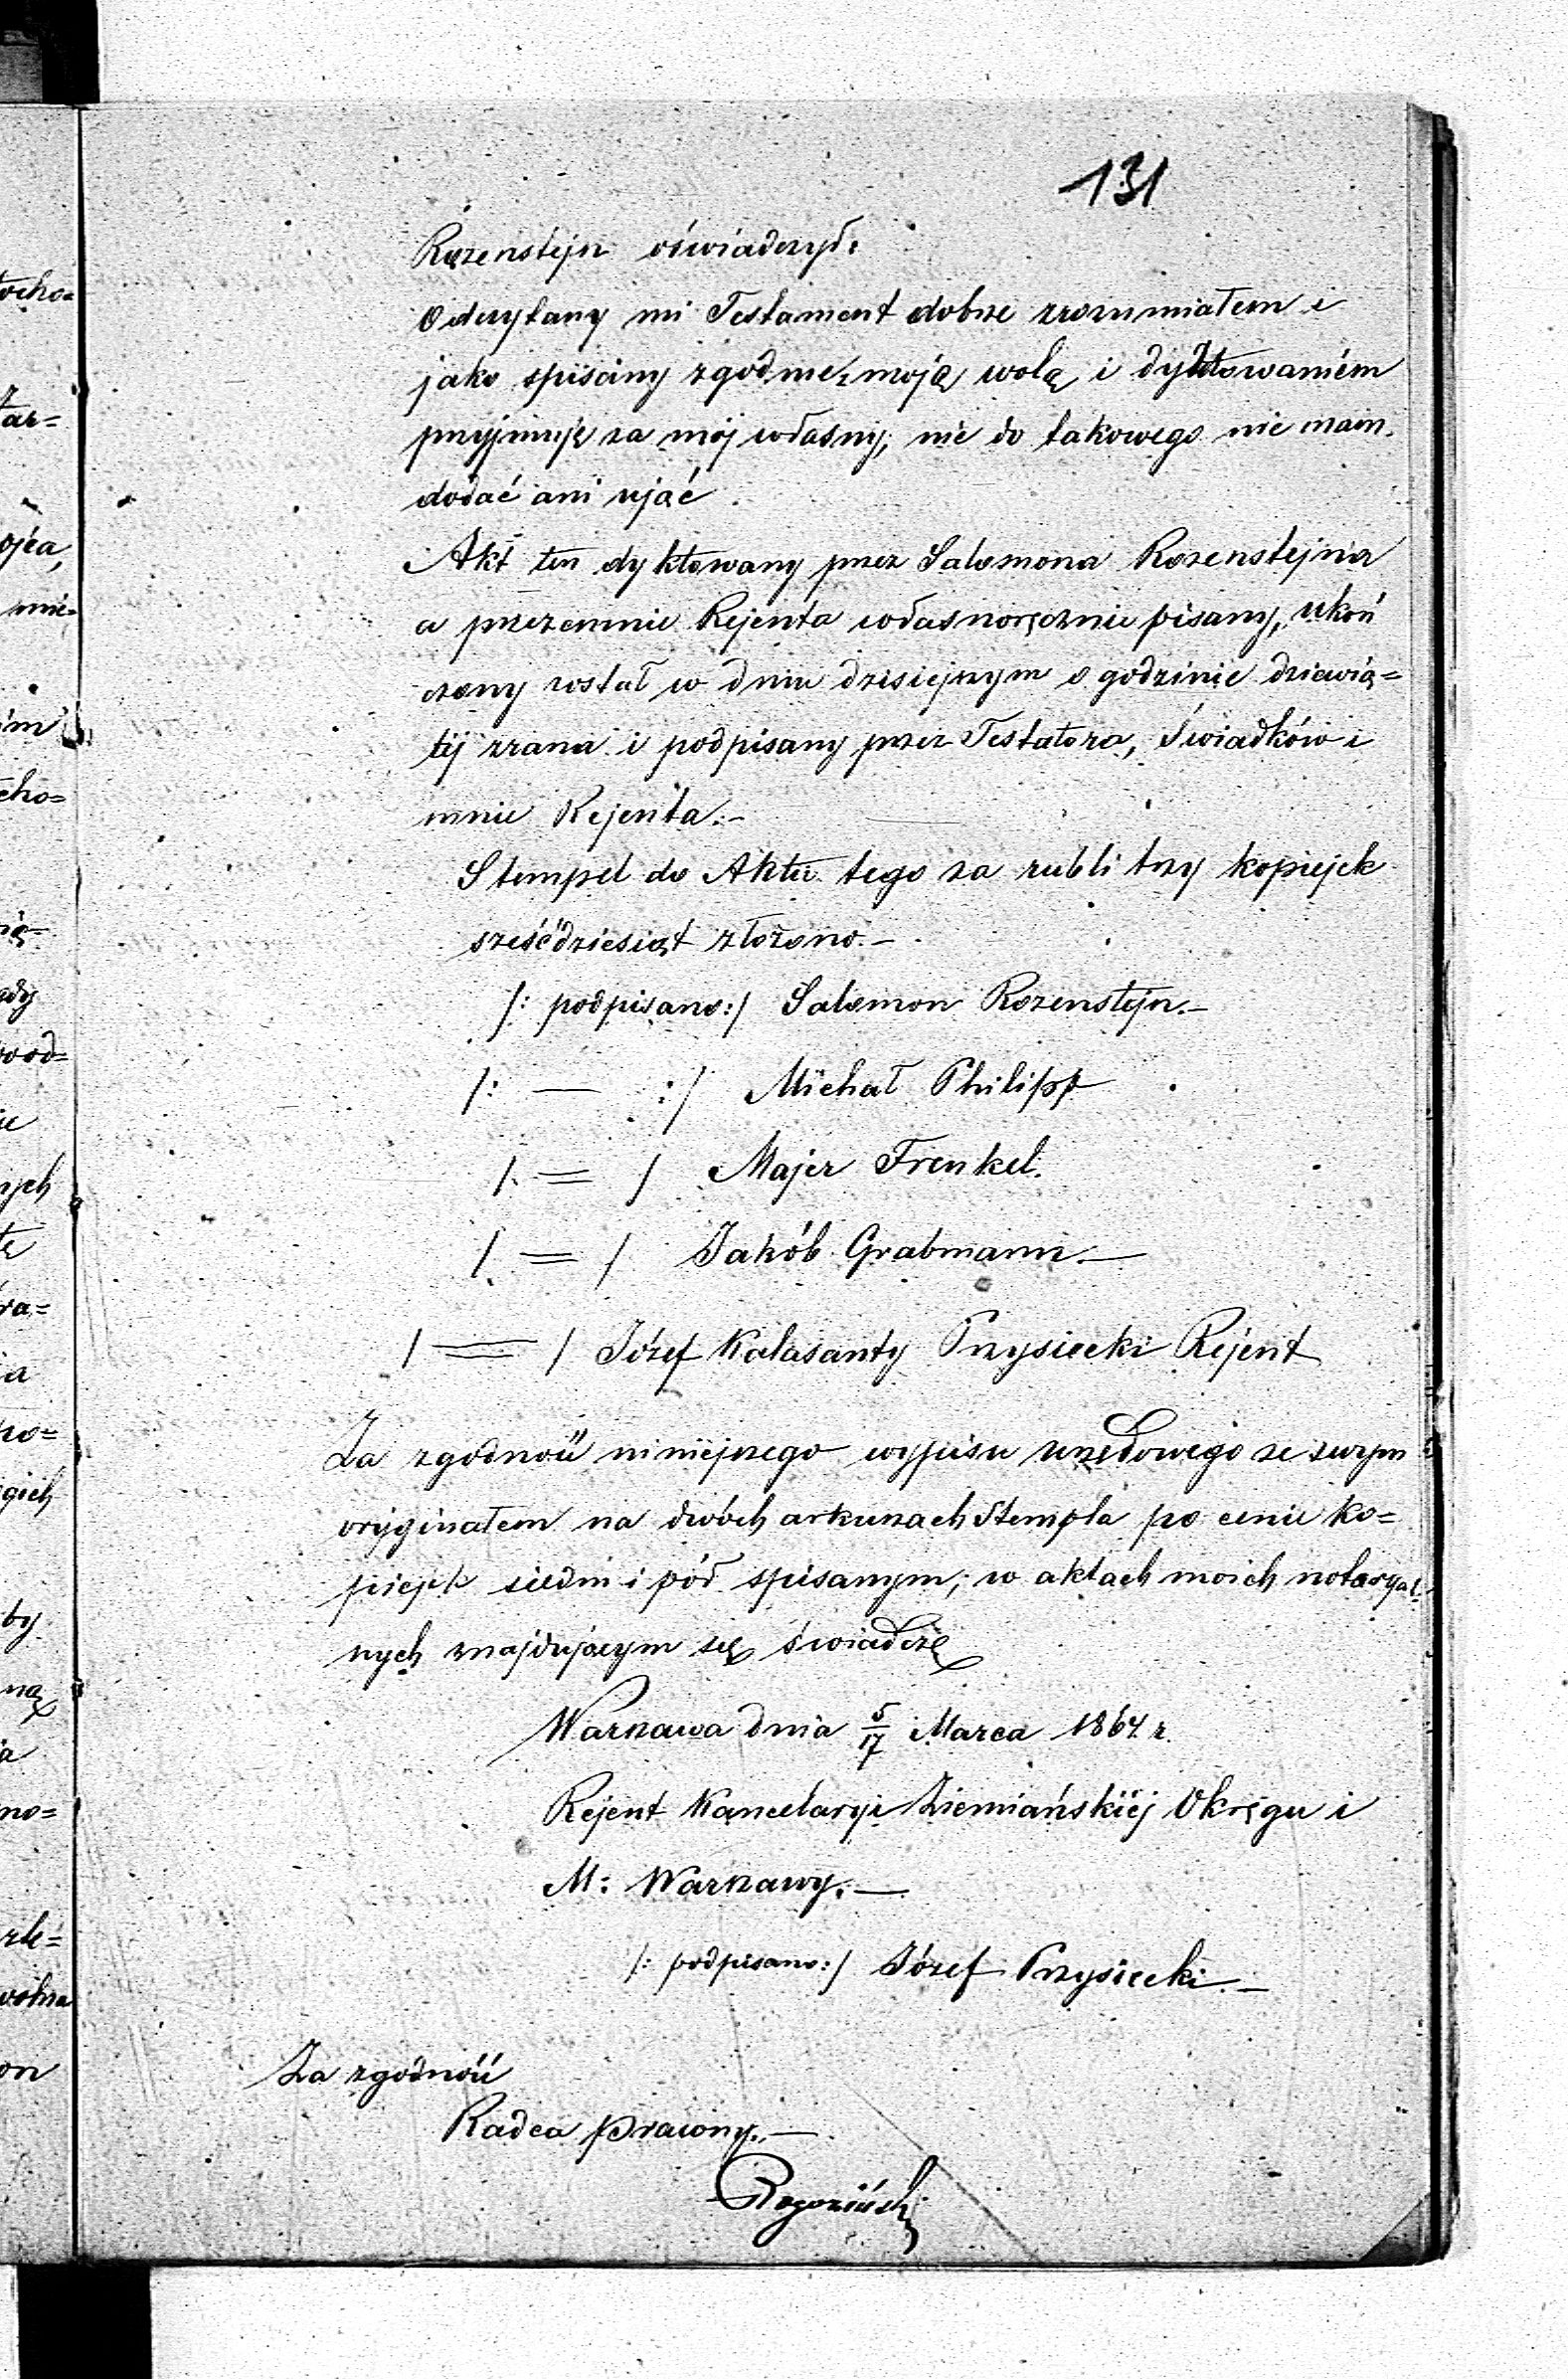 131
Rozenstejn oświadczył:
Odczytany mi Testament dobrze zrozumiałem i
jako spisany zgodnie z moją wolą i dyktowaniém
przyjmuję za mój własny; nic do takowego nie mam
dodać ani ująć.
Akt ten dyktowany przez Salomona Rozenstejna
a przezemnie Rejenta własnoręcznie pisany, ukoń
czony został w dniu dzisiejszym o godzinie dziewią=
téj zrana i podpisany przez Testatora, Świadków i
mnie Rejenta.-
Stempel do Aktu tego za rubli trzy kopiejek
sześćdziesiąt złożono.-
/: podpisano:/ Salomon Rozenstejn.-
/: — :/ Michał Philipp
/. = / Majer Frenkel.
/. = / Jakób Grabmann.—
/ = / Józef Kalasanty Przysiecki Rejent
Za zgodność niniejszego wypisu urzędowego ze swym
oryginałem na dwóch arkuszach Stempla po cenie ko=
piejek siedm i pół spisanym; w aktach moich notaryal-
nych znajdującym się świadczę
Warszawa dnia 5/17 Marca 1864 r.
Rejent Kancelaryi Ziemiańskiéj Okręgu i
M: Warszawy.—
/: podpisano:/ Józef Przysiecki.—
Za zgodność
Radca Prawny.—
Rogoziński
tocho=
tar=
ojca,
mie=
cho=
wod=
nych
ra=
ia
po=
gich
by
ną
no=